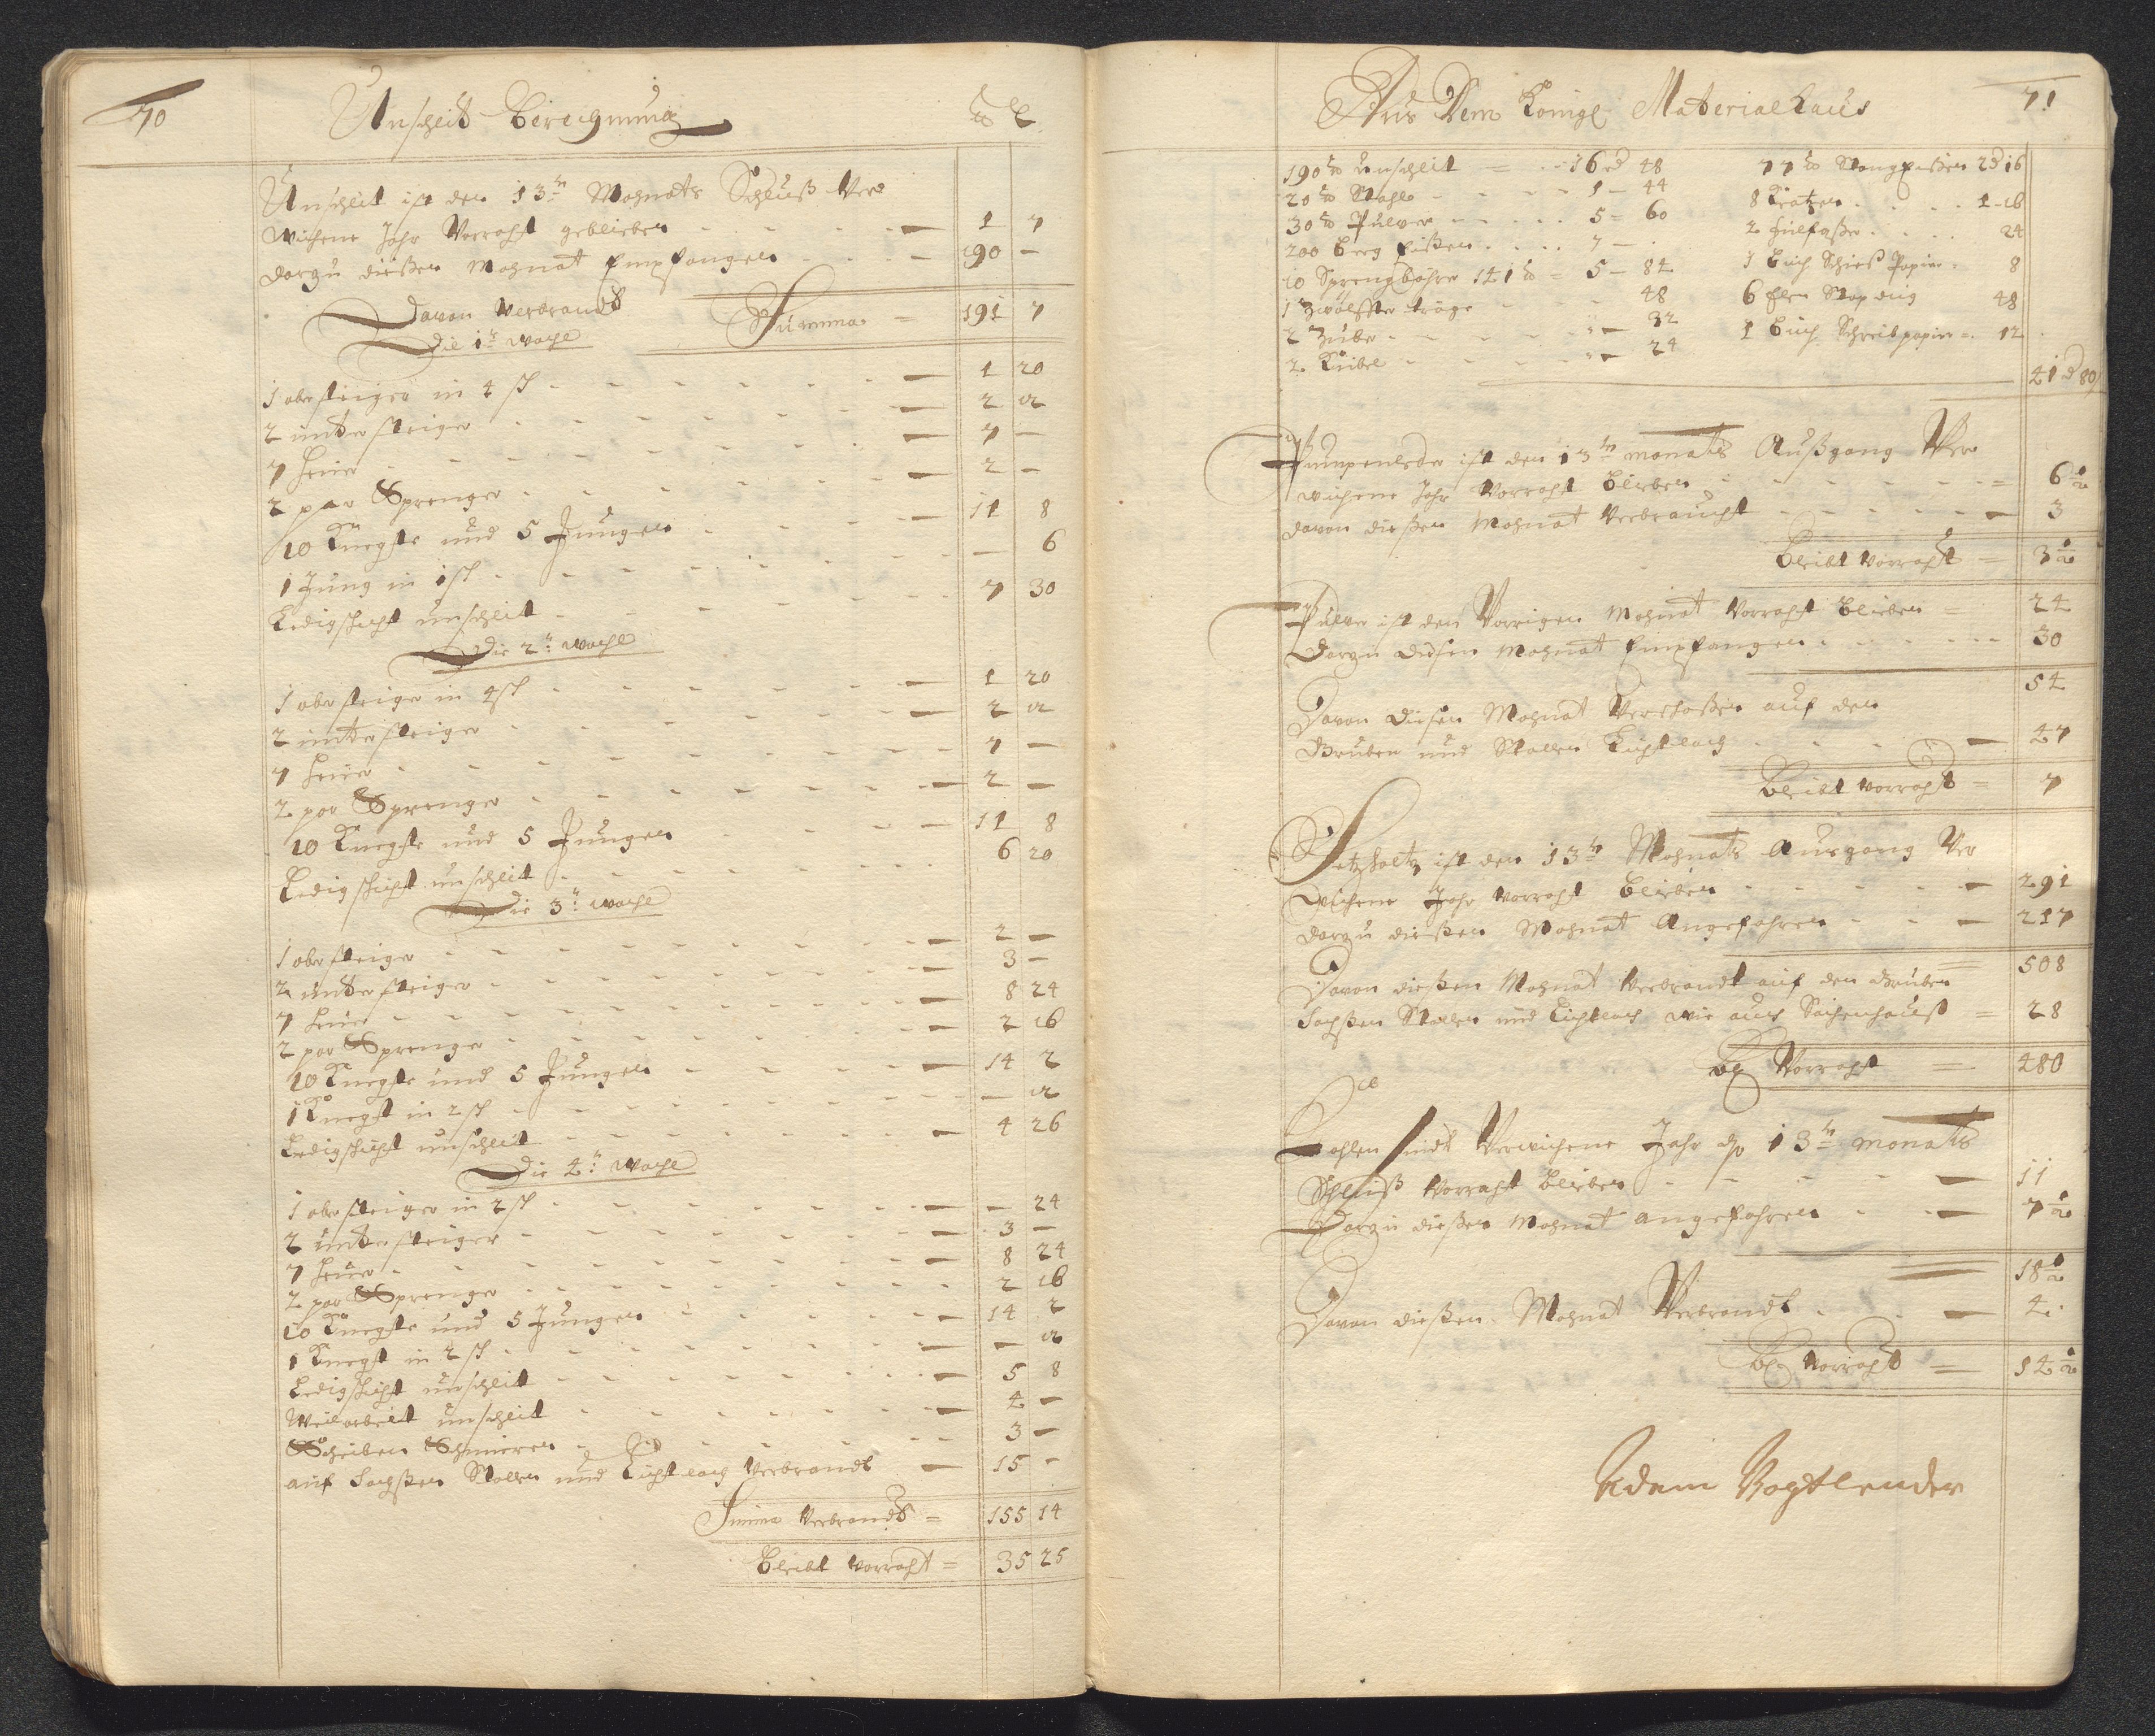 70
Unschlit Berechnung ℔ L
Unschlit ist den 13tn Mohnats Schluß Ver
wichene Jahr Vorraht geblieben - - - 1 7
darzu dießen Mohnat Empfangen - - - 190 -
Summa = 191 7
Davon Verbrandt
Die 1te Woche
1 obersteiger in 4 sch - - - 1 20
2 untersteiger - - - 2
7 heuer - - - 7 -
2 par Sprenger - - - 2 -
10 Knegste und 5 Jungen - - - 11 8
1 Jung in 1 sch - - - - 6
Ledigschicht unschlit - - - 7 30
Die 2te Woche
1 obersteiger in 4 sch - - - 1 20
2 untersteiger - - - 2
7 heuer - - - 7 -
2 par Sprenger - - - 2 -
10 Knegste und 5 Jungen - - - 11 8
Ledigschicht unschlit - - - 6 20
Die 3te Woche
1 obersteiger - - - 2 -
2 untersteiger - - - 3 -
7 heuer - - - 8 24
2 par Sprenger - - - 2 16
10 Knegste und 5 Jungen - - - 14 2
1 Knegst in 2 sch - - - -
Ledigschicht unschlit - - - 4 26
Die 4te Woche
1 obersteiger in 2 sch - - - - 24
2 untersteiger - - - 3 -
7 heuer - - - 8 24
2 par Sprenger - - - 2 16
10 Knegste und 5 Jungen - - - 14 2
1 Knegst in 2 sch - - - -
Ledigschicht unschlit - - - 5 8
Weilarbeit unschlit - - - 4 -
Scheiben Schmieren - - - 3 -
auf Sachßen Stollen und Lichtloch Verbrandt - 15 -
Summa Verbrandt = 155 14
Bleibt Vorraht = 35 25
71
Aus Dem Königl: Materialhaus
190 ℔ Unschlit = - 16 d 48
20 ℔ Stahl - - - 1 - 44
30 ℔ Pulver - - - 5 - 60
200 Berg Eißen - - - 7 -
10 Sprengbohre 141 ℔ = 5 - 84
1 Zwölffter tröge - - 48
2 Zuber - - - 32
2 Kübel - - - 24
77 ℔ Stangeißen 2 d 16
8 Kratzen - - - 1 - 16
2 24
1 Buch Schieß Papier - 8
6 Elen 48
1 Buch Schreibpapier = 12
41 d 80
Pumpenleder ist den 13tn monats Außgang Ver
wichene Jahr Vorraht Blieben - - - 6 1/2
davon dießen Mohnat Verbraucht - - - 3
Bleibt Vorraht = 3 1/2
Pulver ist den Vorrigen Mohnat Vorraht Blieben = 24
Darzu dießen Mohnat Empfangen - - - 30
54
Davon dießen Mohnat Verschoßen auf den
Gruben und Stollen Lichtloch - - - 47
Bleibt Vorraht = 7
Setzholtz ist den 13tn Mohnats Ausgang Ver
wichene Jahr Vorraht Blieben - - - 291
darzu dießen Mohnat Angefahren - - - 217
508
Davon dießen Mohnat Verbrandt auf den Gruben
Sachßen Stollen und Lichtloch wie auch = 28
Bl: Vorraht = 480
Kohlen sindt Verwichene Jahr 13tn monats
Schluß Vorraht Blieben - - - 11
Darzu dießen Mohnat angefahren - - - 7 1/2
18 1/2
Davon dießen Mohnat Verbrandt - - - 4
Bl: Vorraht = 14 1/2
Adam Vogtlender